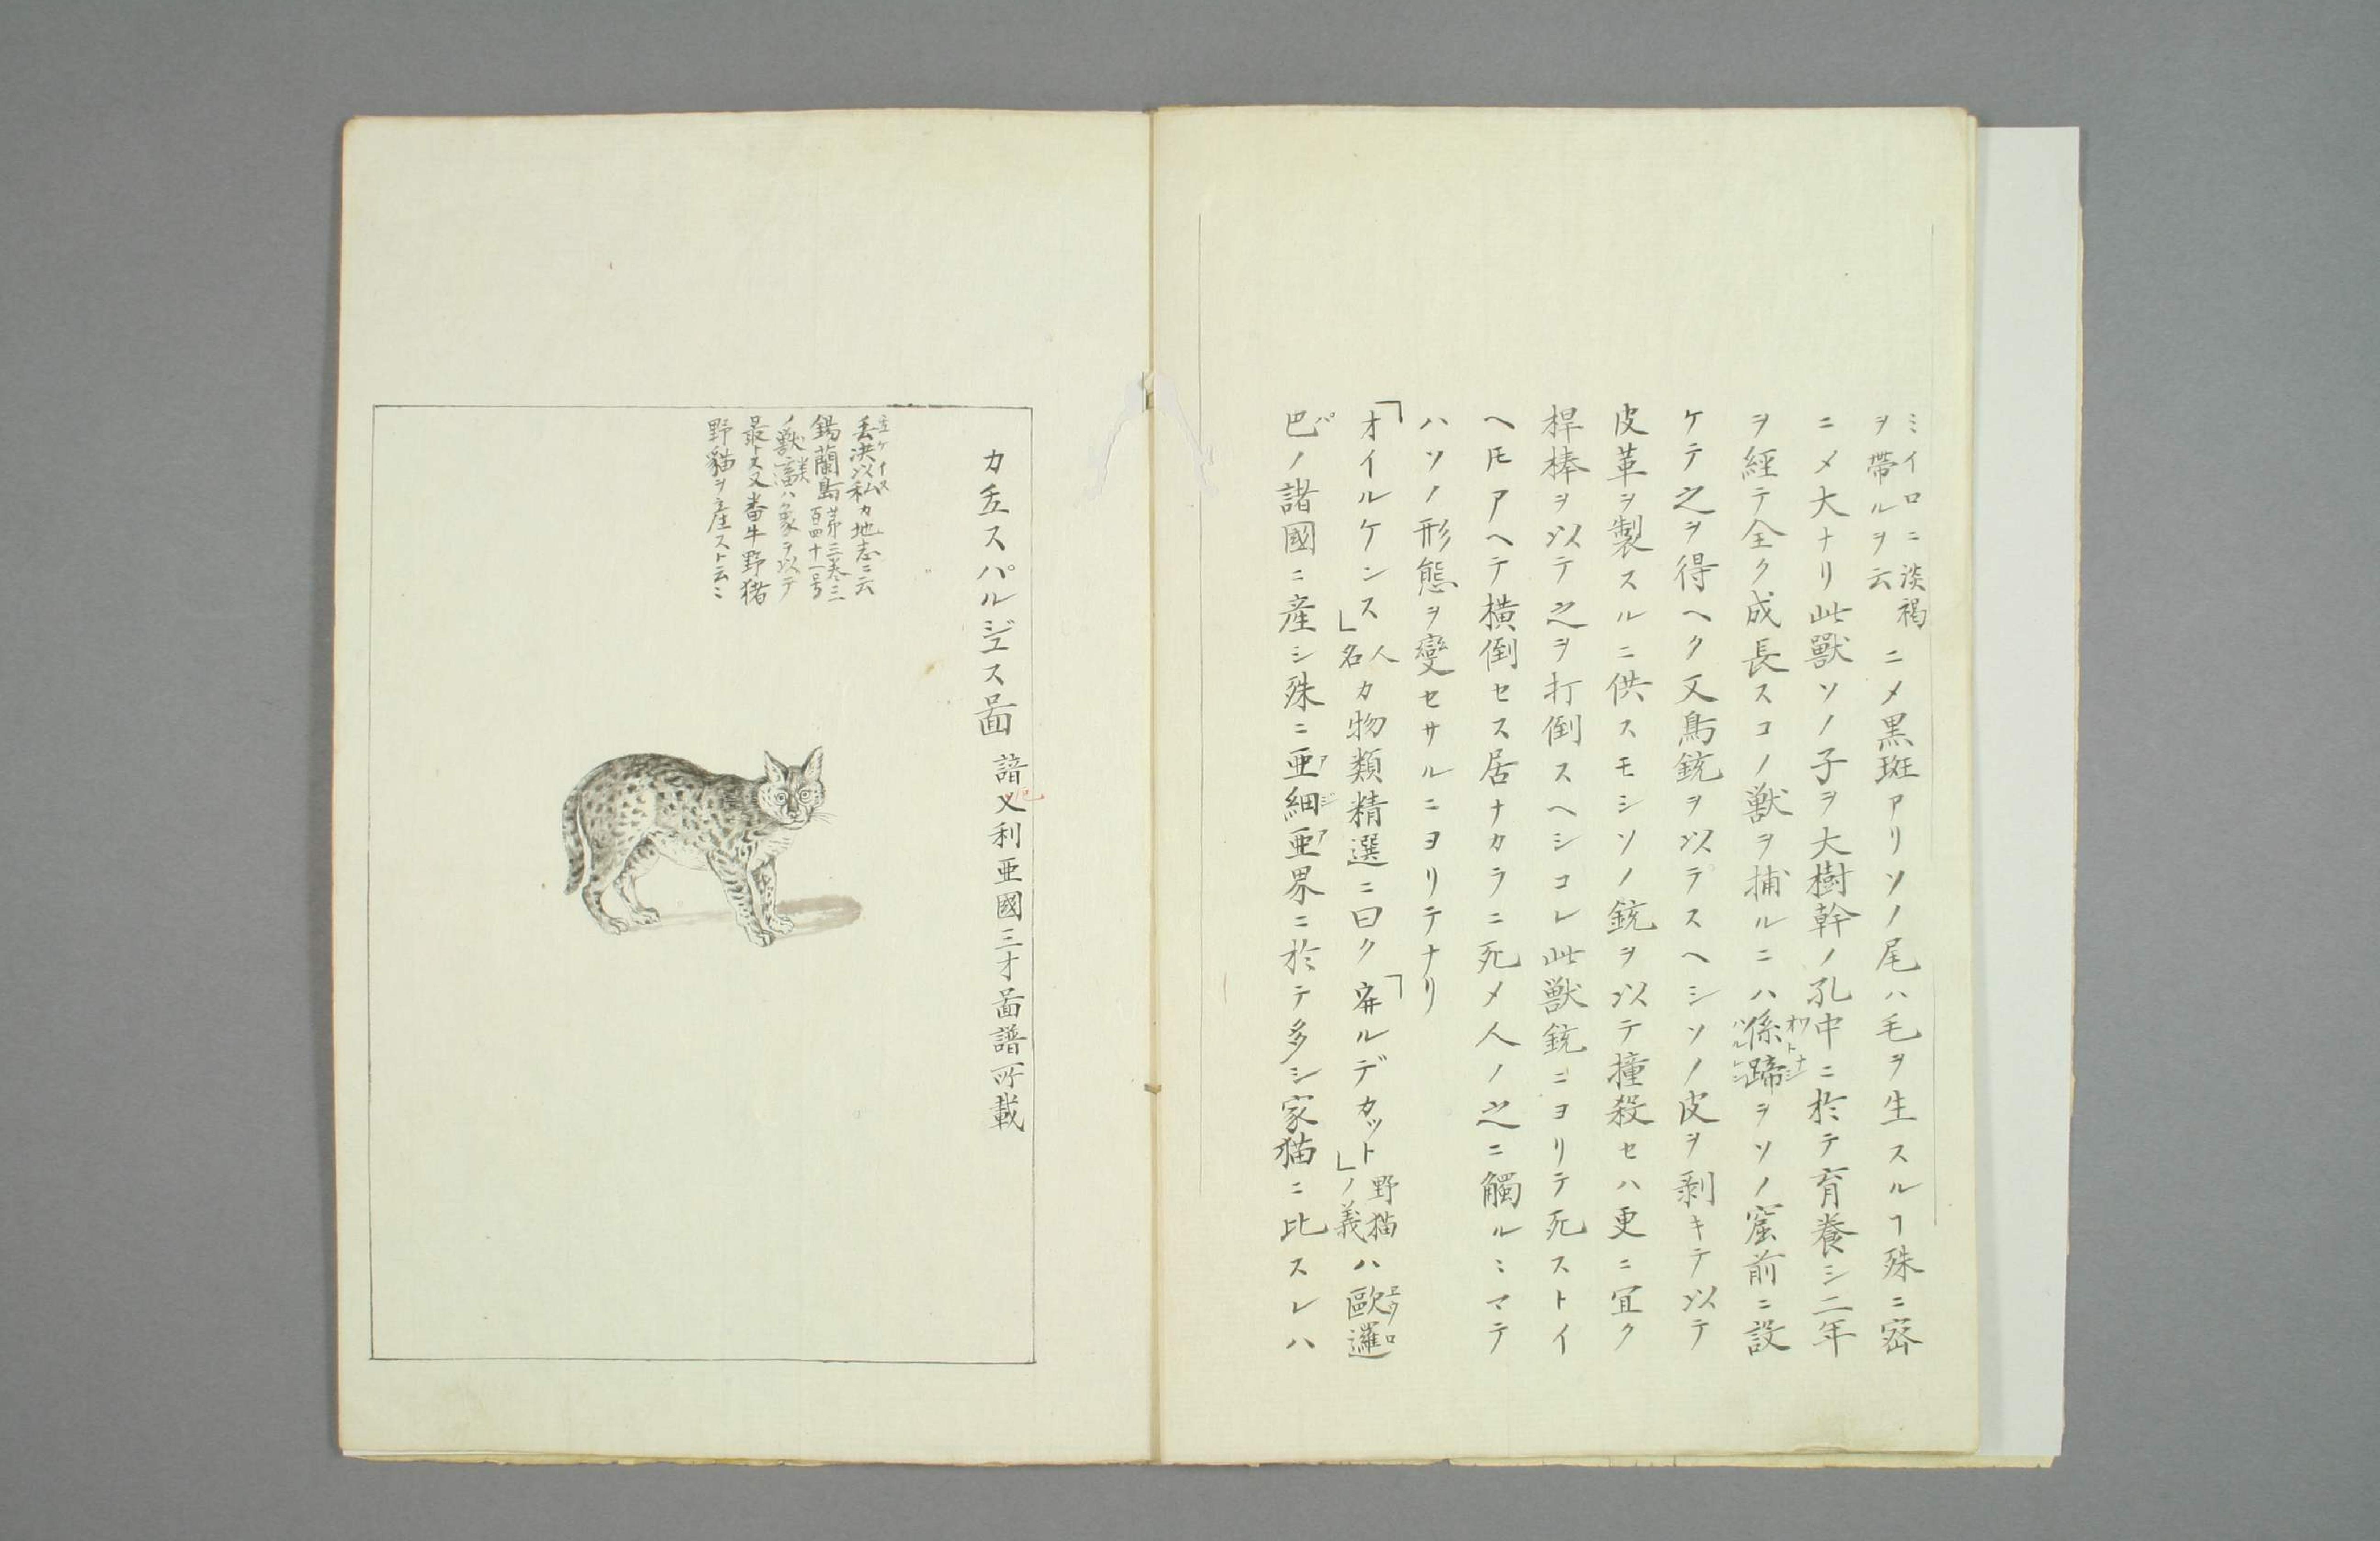 ミイロニ淡褐
ヲ帶ルヲ云
ニメ黒斑アリソノ尾ハ毛ヲ生スルヿ殊ニ密
ニメ大ナリ此獸ソノ子ヲ大樹幹ノ孔中ニ於テ育養シ二年
ヲ經テ全ク成長スコノ獣ヲ捕ルニハ係蹄ヲソノ窟前ニ設
オトナシ
ハルレシ
ケテ之ヲ得ヘク又鳥銃ヲ以テスヘシソノ皮ヲ剥キテ以テ
皮革ヲ製スルニ供スモシソノ銃ヲ以テ撞殺セハ更ニ宜ク
桿棒ヲ以テ之ヲ打倒スヘシコレ此獣銃ニヨリテ死ストイ
ヘ𪜈アヘテ横倒セス居ナカラニ死メ人ノ之ニ觸ルヽマテ
ハソノ形態ヲ變セサルニヨリテナリ
「オイルケンス」人名カ物類精選ニ曰ク「ルデカット」野猫ノ義ハ歐邏
エウロ
巴ノ諸國ニ産シ殊ニ亜細亜界ニ於テ多シ家猫ニ比スレハ
パ
アジア
カスパルジヱス啚
諳叉利亜國三才啚譜所載
ケイス
決以私カ地志ニ云
錫蘭島第三巻三百四十一号
ノ獣ハ象ヲ以テ
最トス又畨牛野猪
野貓ヲ産スト云ヽ